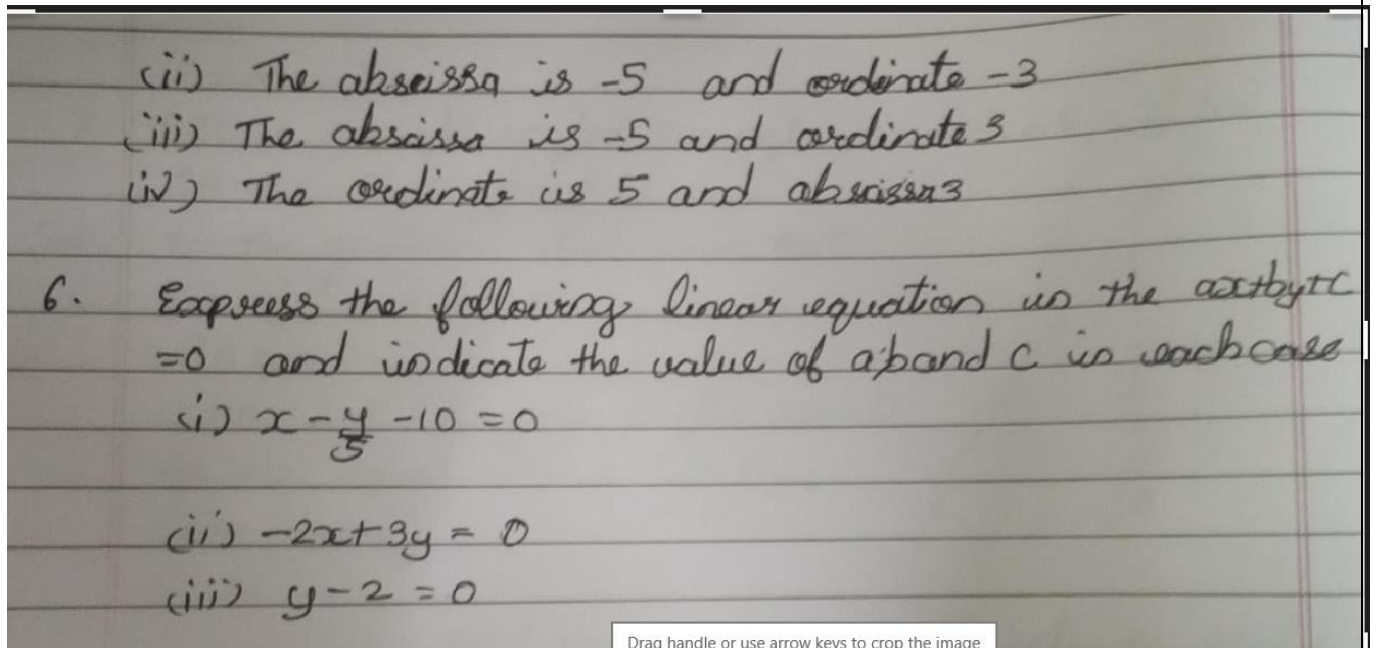 (ii) The abscissa is -5 and ordinate -3
(iii) The abscissa is -5 and ordinate 3
(iv) The ordinate is 5 and abscissa 3
6. Express the following linear equation in the ax+by+c
=0 and indicate the value of a,b and c in each case
(i) x - y/5 - 10 = 0
(ii) -2x+3y = 0
(iii) y-2 = 0
Drag handle or use arrow keys to crop the image